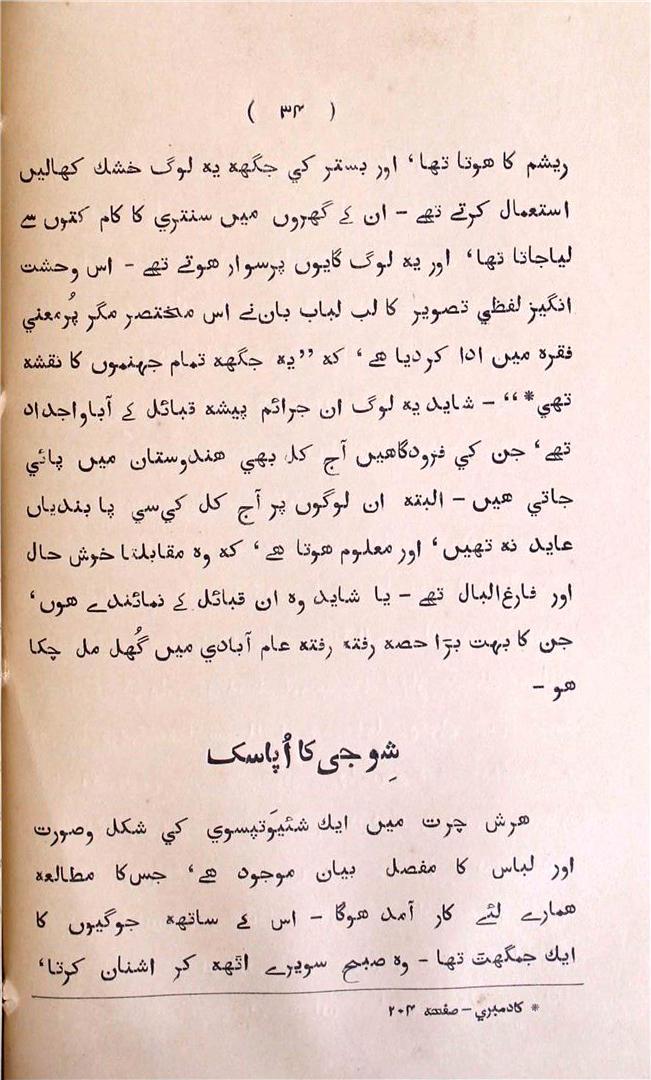 ( ۳۴ )
ریشم کا ہوتا تھا، اور بستر کي جگھہ یہ لوگ خشک کھالیں
استعمال کرتے تھے – ان کے گھروں میں سنتري کا کام کتوں سے
لیاجاتا تھا، اور یہ لوگ گایوں پرسوار ہوتے تھے – اس وحشت
انگیز لفظي تصویر کا لب لباب بان نے اس مختصر مگر پُرمعني
فقرہ میں ادا کردیا ہے، کہ ”یہ جگھہ تمام جہنموں کا نقشہ
تھي*“ – شاید یہ لوگ ان جرائم پیشہ قبائل کے آباواجداد
تھے، جن کي فرودگاہیں آج کل بھي ہندوستان میں پائي
جاتي ہیں – البتہ ان لوگوں پر آج کل کي سي پابندیاں
عاید نہ تھیں، اور معلوم ہوتا ہے، کہ وہ مقابلتاً خوش حال
اور فارغ البال تھے – یا شاید وہ ان قبائل کے نمائندے ہوں،
جن کا بہت بڑا حصہ رفتہ رفتہ عام آبادي میں گُھل مل چکا
ہو –
شِو جی کا اُپاسک
ہرش چرت میں ایک شئیوَتپسوي کي شکل وصورت
اور لباس کا مفصل بیان موجود ہے، جس کا مطالعہ
ہمارے لئے کار آمد ہوگا – اس کے ساتھہ جوگیوں کا
ایک جمگھٹ تھا – وہ صبح سویرے اٹھہ کر اشنان کرتا،
* کادمبري – صفحہ ۲۰۴